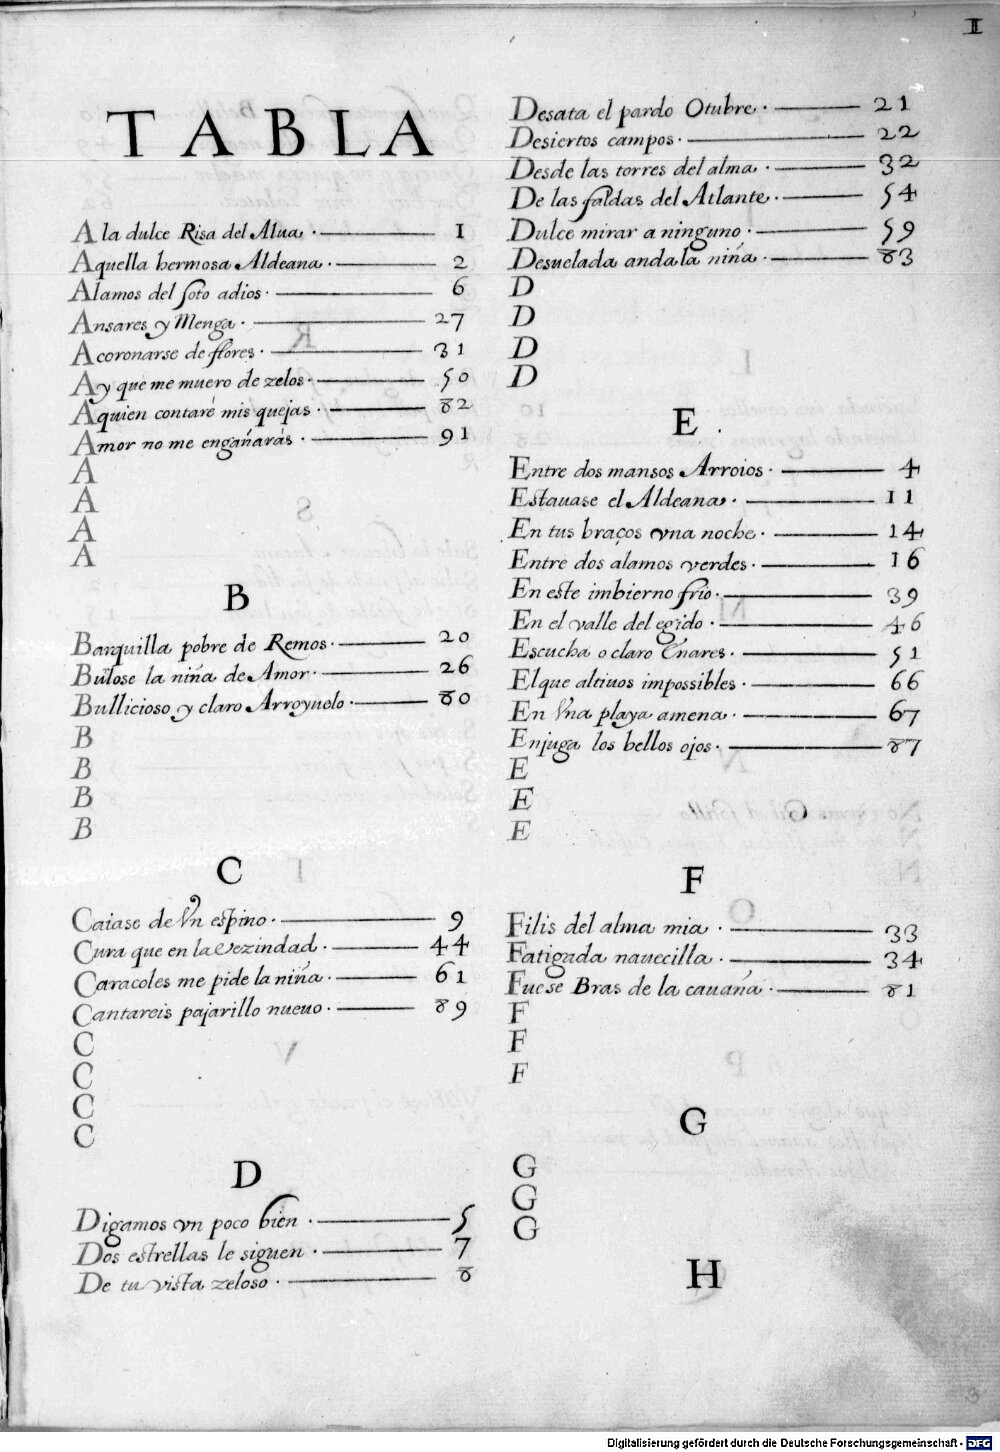 II
TABLA
A la dulce Risa del Alua · 1
Aquella hermosa Aldeana · 2
Alamos del soto adios · 6
Ansares y Menga · 27
A coronarse de flores · 31
Ay que me muero de zelos · 50
Aquien contaré mis quejas · 82
Amor no me engañarás · 91
A
A
A
A
B
Barquilla pobre de Remos · 20
Búlose la niña de Amor · 26
Bullicioso y claro Arroyuelo · 80
B
B
B
B
C
Caiase de Vn espino · 9
Cura que en la vezindad · 44
Caracoles me pide la niña · 61
Cantareis pajarillo nueuo · 89
C
C
C
C
D
Digamos vn poco bien · 5
Dos estrellas le siguen · 7
De tu vista zeloso · 8
Desata el pardo Otubre · 21
Desiertos campos · 22
Desde las torres del alma · 32
De las faldas del Atlante · 54
Dulce mirar a ninguno · 59
Desuelada anda la niña · 83
D
D
D
D
E
Entre dos mansos Arroios · 4
Estauase el Aldeana · 11
En tus braços vna noche · 14
Entre dos alamos verdes · 16
En este imbierno frio · 39
En el valle del egido · 46
Escucha o claro Enares · 51
El que altiuos impossibles · 66
En Vna playa amena · 67
Enjuga los bellos ojos · 87
E
E
E
F
Filis del alma mia · 33
Fatigada nauecilla · 34
Fuese Bras de la cauaña · 81
F
F
F
G
G
G
G
H
Digitalisierung gefördert durch die Deutsche Forschungsgemeinschaft · DFG